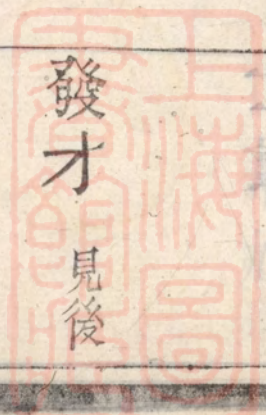 發才 見後
上海圖書館藏